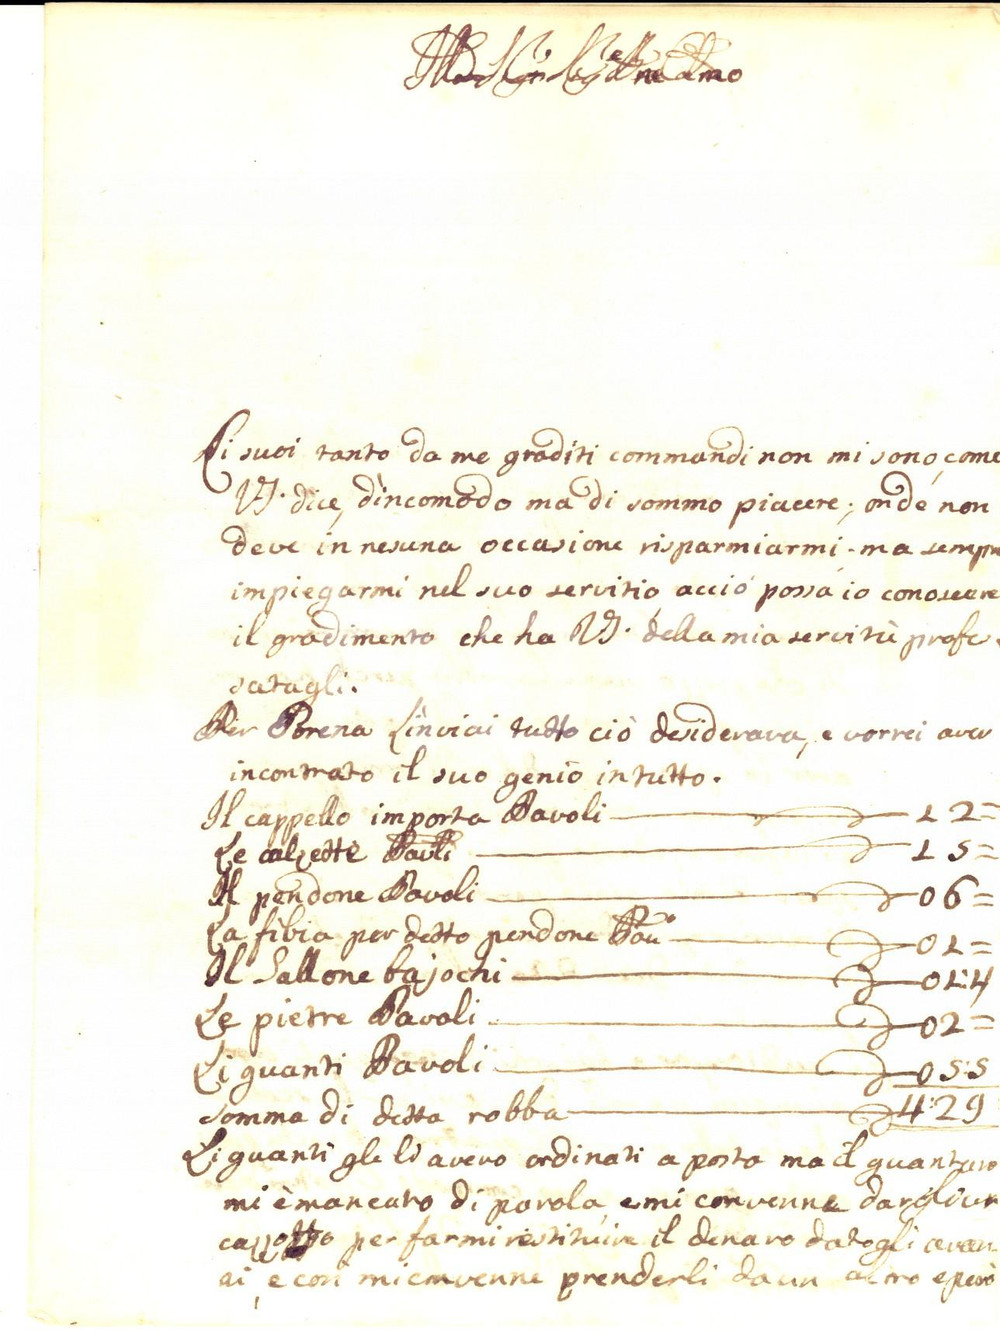 Li suoi tanto da me graditi commandi non mi sono, come
VS. dice, d'incomodo ma di sommo piacere; onde non
deve in nesuna occasione risparmiarmi, ma sempre
impiegarmi nel suo servitio acciò possa io conoscere
il gradimento che ha VS. della mia servitù profe
satagli.
Per Porena l'inviai tutto ciò desiderava, e vorrei aver
incontrato il suo genio in tutto.
Il cappello importa Pavoli 12=
Le calzette Pauli 15=
Il pendone Pavoli 06=
La fibia per detto pendone Pau 01=
Il Sallone bajochi 01:4
Le pietre Pavoli 02=
Li guanti Pavoli 05:5
Somma di detta robba 4:29
Li guanti gle li avevo ordinati a posta ma il guantaro
mi è mancato di parola, e mi convenne dargli un
per farmi restituire il denaro datogli avan
ai, e così mi convenne prenderli da un altro e però